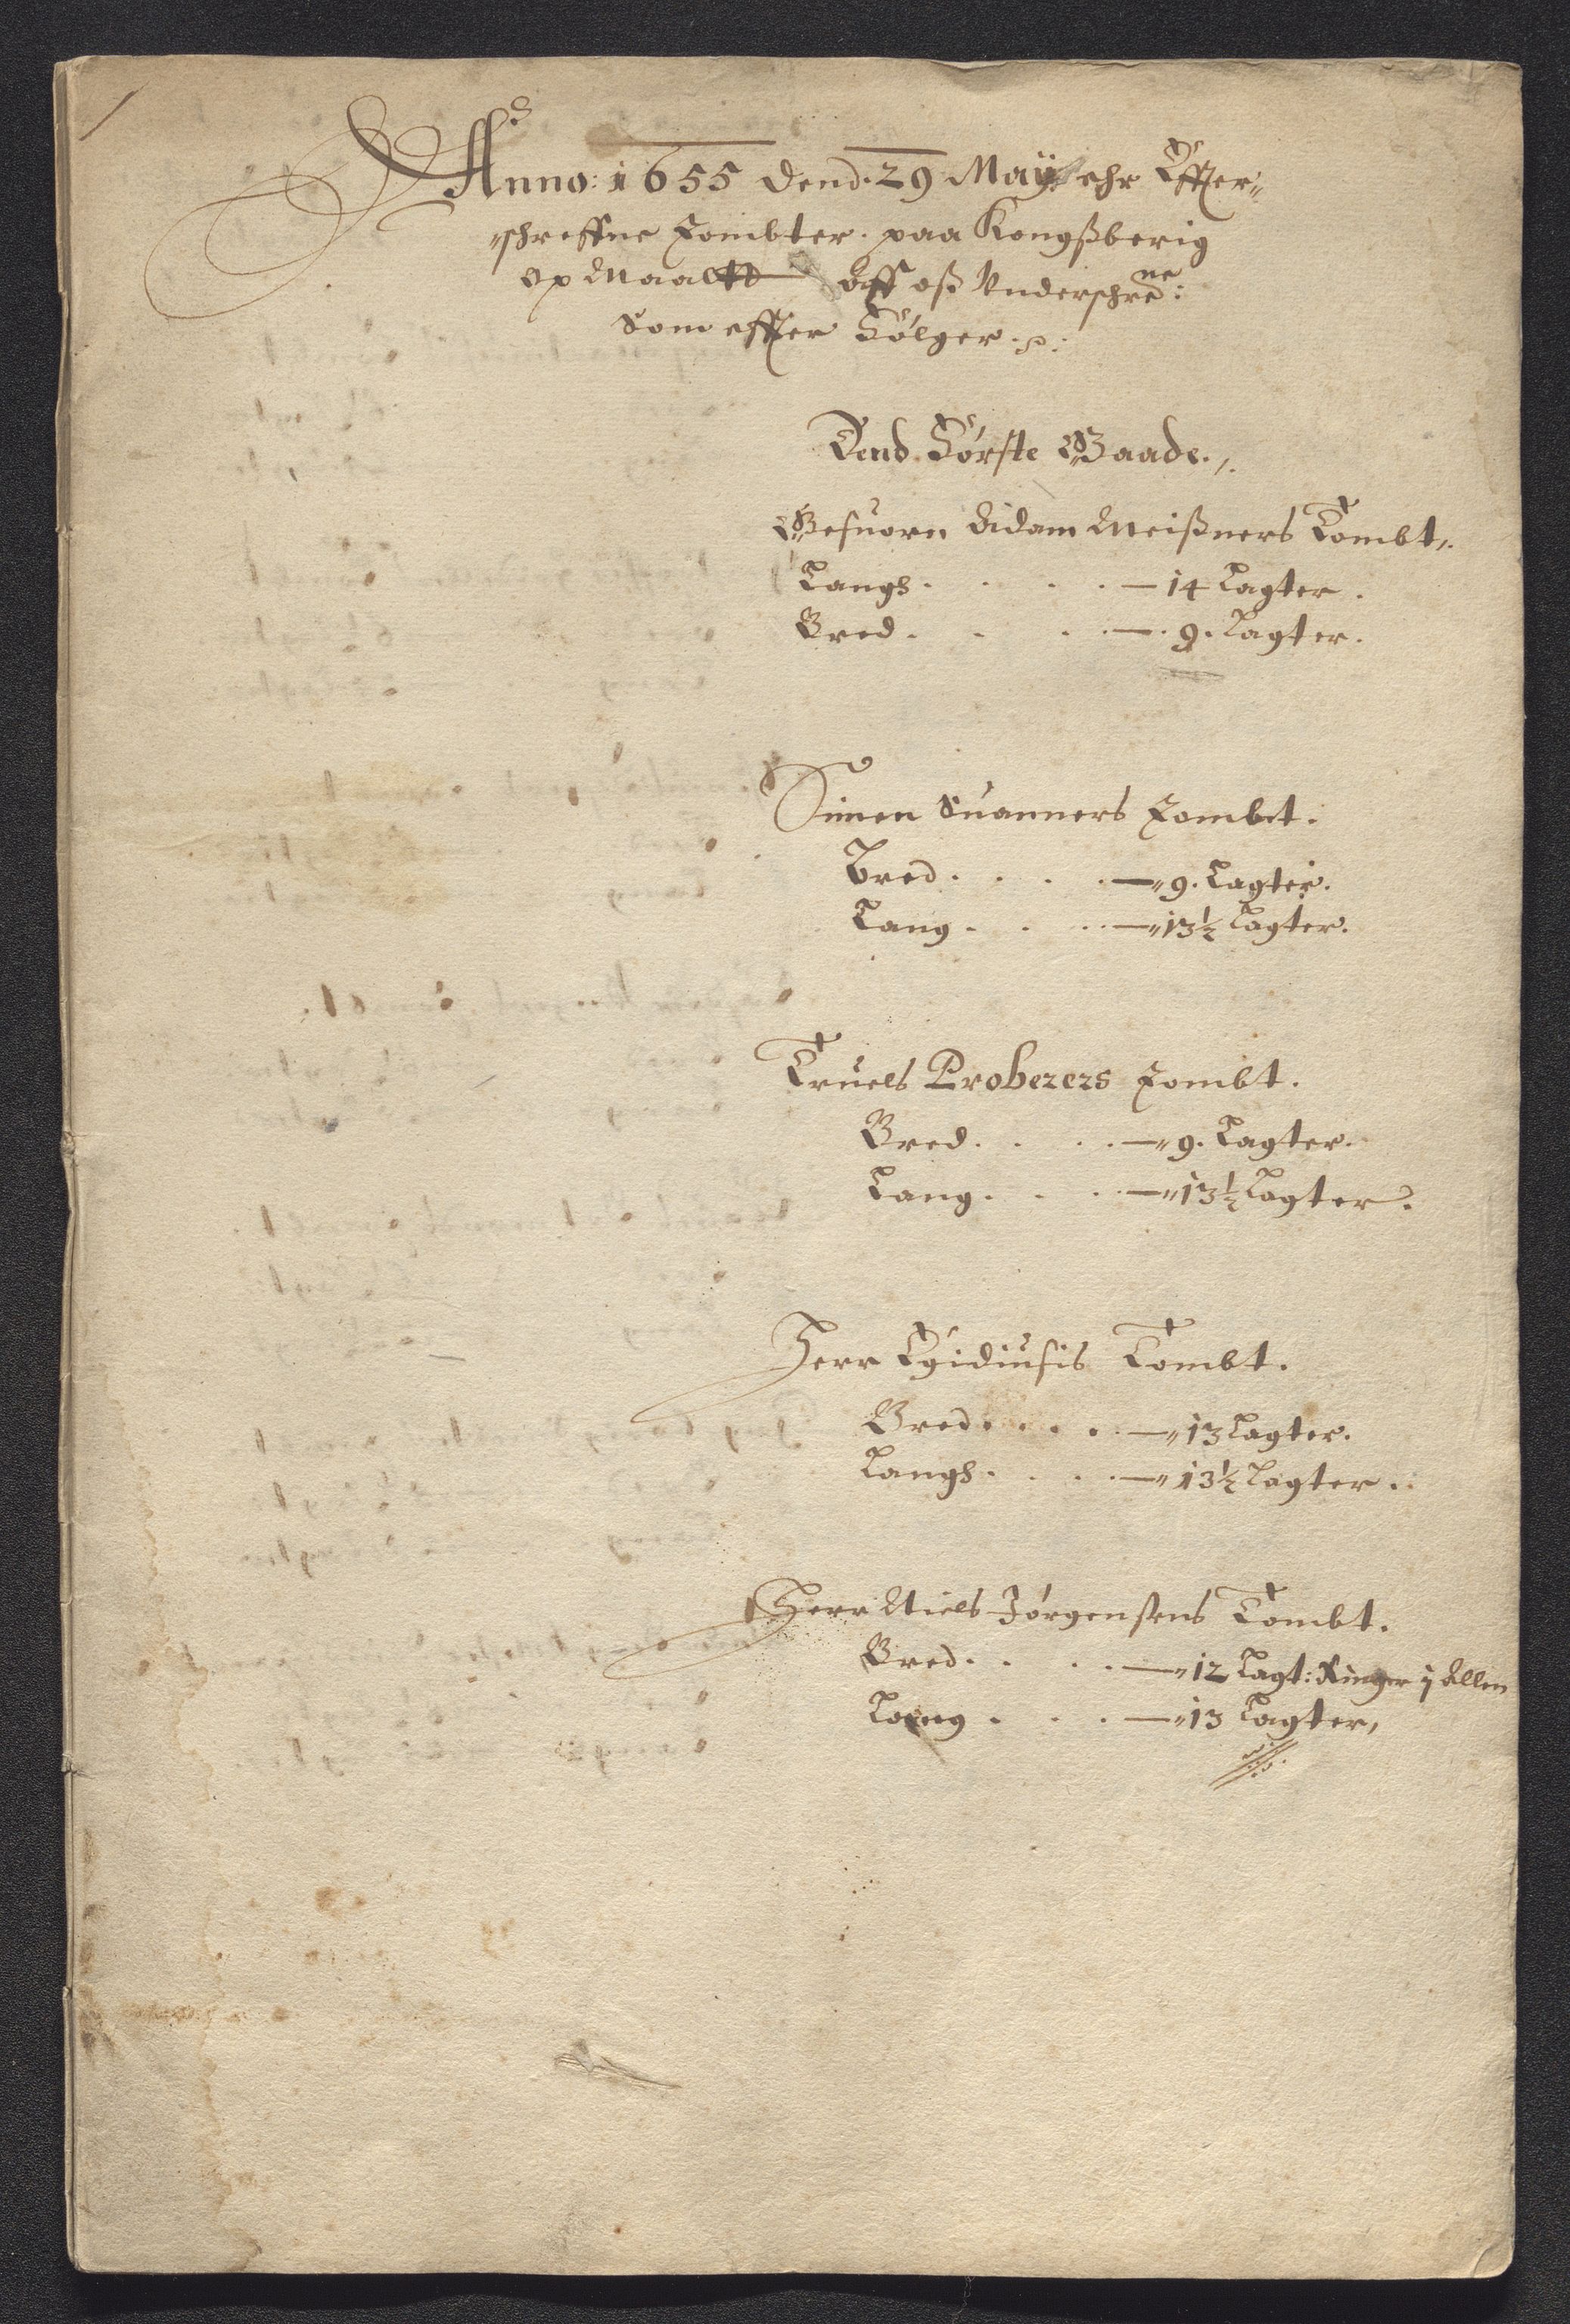 Anno: 1655 dend. 29 Maÿ ehr Effter„
„schreffne Tombter. paa Kongßberig
op Maaltt Aff oß Underschre ne:
Som effter Fölger.
Dend Förste Gaade.
Gesuorn Adam Meißners Tombt.
Langh. . . . — 14 Lagter.
Bred. . . . — 9. Lagter.
Simen Suanners Tombt.
Bred. . . . —„ 9. Lagter.
Lang. . . . —„ 13½ Lagter.
Truels Proberers Tombt.
Bred. . . . —„ 9. Lagter.
Lang. . . . —„ 13½ Lagter.
Herr Egidiusis Tombt.
Bred. . . . —„ 13 Lagter.
Langh. . . . —„ 13½ Lagter.
Herr Niels Jörgensens Tombt.
Bred. . . . —„ 12 Lagt: Ringer j Allen
Lang. . . . —„ 13 Lagter,